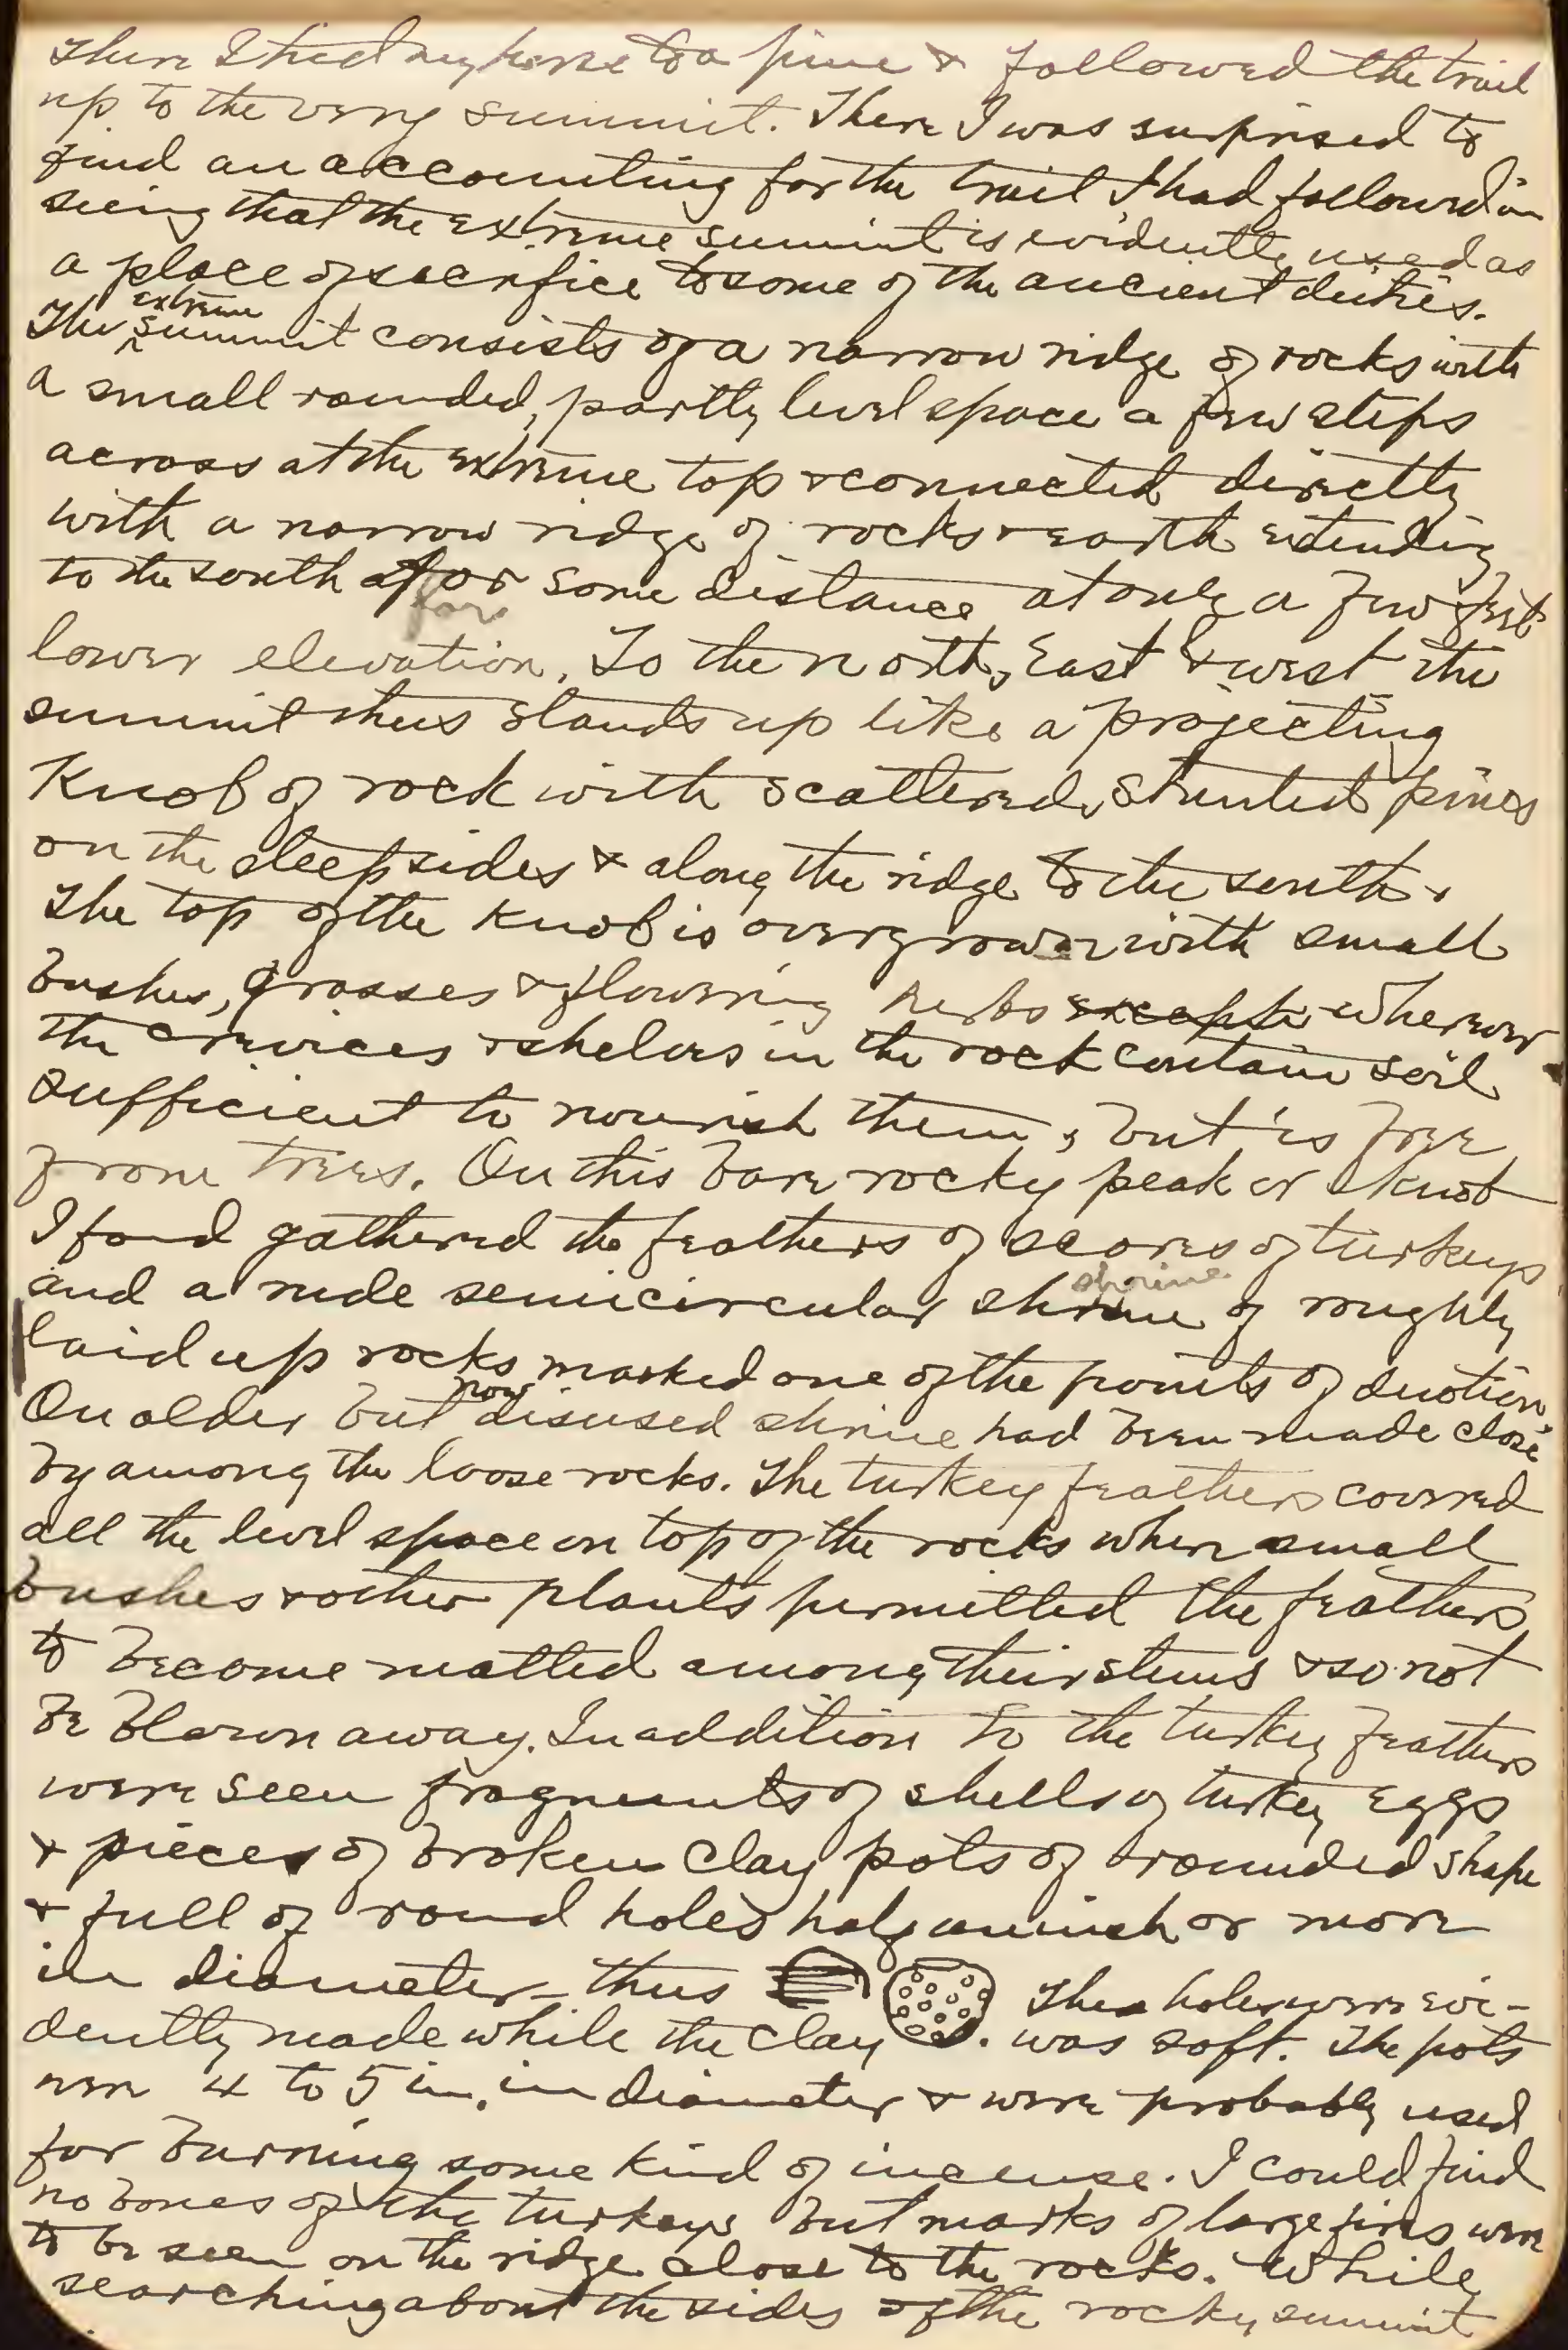 There I tied my horse to a pine & followed the trail
up to the very summit. There I was surprised to
find an accounting for the trail I had followed in
seeing that the extreme summit is evidently used as
a place of sacrifice to some of the ancient deities.
The extreme summit consists of a narrow ridge of rocks with
a small rounded, partly level space a few steps
across at the extreme top & connected directly
with a narrow ridge of rocks & earth extending
to the south for for some distance at only a few feet
lower elevation. To the north, East & west the
summit thus stands up like a projecting
Knob of rock with scattered, stunted pines
on the steep sides & along the ridge to the south.
The top of the Knob is overgrown with small
bushes, grasses & flowering herbs except wherever
the crevices & shelves in the rock contain soil
sufficient to nourish them, but is free
from trees. On this bare rocky peak or knob
I found gathered the feathers of scores of turkeys
and a rude semicircular shrine shrine of roughly
laid up rocks marked one of the points of devotion.
An older but now disused shrine had been made close
by among the loose rocks. The turkey feathers covered
all the level space on top of the rocks where small
bushes & other plants permitted the feathers
to become matted among their stems & so not
be blown away. In addition to the turkey feathers
were seen fragments of shells of turkey Eggs
& pieces of broken clay pots of rounded shape
& full of round holes half an inch or more
in diameter - thus The holes were evi-
dently made while the clay was soft. The pots
were 4 to 5 in. in diameter & were probably used
for burning some kind of incense. I could find
no bones of the turkeys but marks of large fires were
to be seen on the ridge close to the rocks. While
searching about the sides of the rocky summit